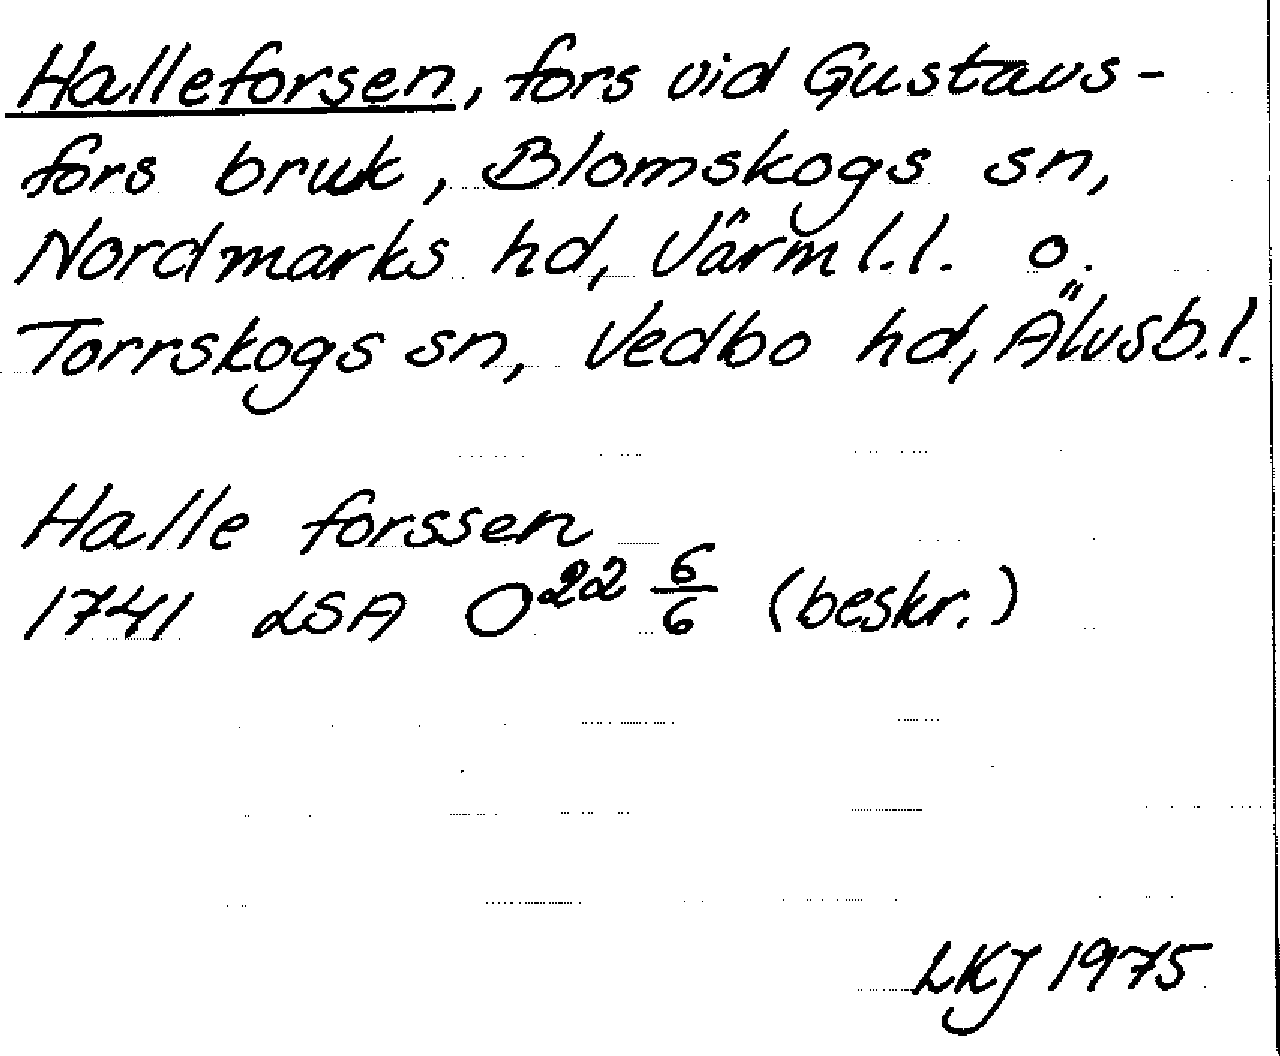 Halleforsen, fors vid Gustavs-
fors bruk, Blomskogs sn,
Nordmarks hd, Värml.l. o.
Torrskogs sn, Vedbo hd, Älvsb.l.
Halle forssen
1741 LSA O²² 6/6 (beskr.)
LKJ 1975